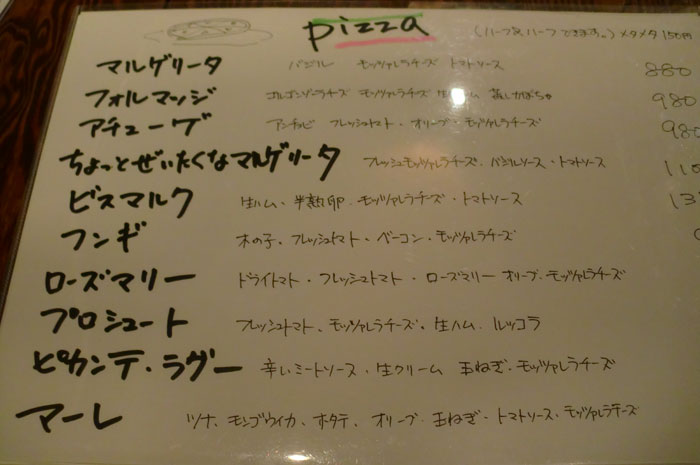 pizza (ハーフ&ハーフできます。) メタメタ 150円
マルゲリータ バジル モッツァレラチーズ トマトソース 880
フォルマッジ ゴルゴンゾーラチーズ モッツァレラチーズ 生ハム 蒸しかぼちゃ 980
アチューゲ アンチョビ フレッシュトマト・オリーブ・モッツァレラチーズ 980
ちょっとぜいたくなマルゲリータ フレッシュモッツァレラチーズ、バジルソース・トマトソース 110
ビスマルク 生ハム・半熟卵 モッツァレラチーズ・トマトソース 13
フンギ 木の子・フレッシュトマト・ベーコン・モッツァレラチーズ
ローズマリー ドライトマト・フレッシュトマト・ローズマリー オリーブ・モッツァレラチーズ
プロシュート フレッシュトマト、モッツァレラチーズ・生ハム、ルッコラ
ピカンテ・ラグー 辛いミートソース・生クリーム 玉ねぎ・モッツァレラチーズ
マーレ ツナ、モンゴウイカ・ホタテ、オリーブ・玉ねぎ・トマトソース・モッツァレラチーズ